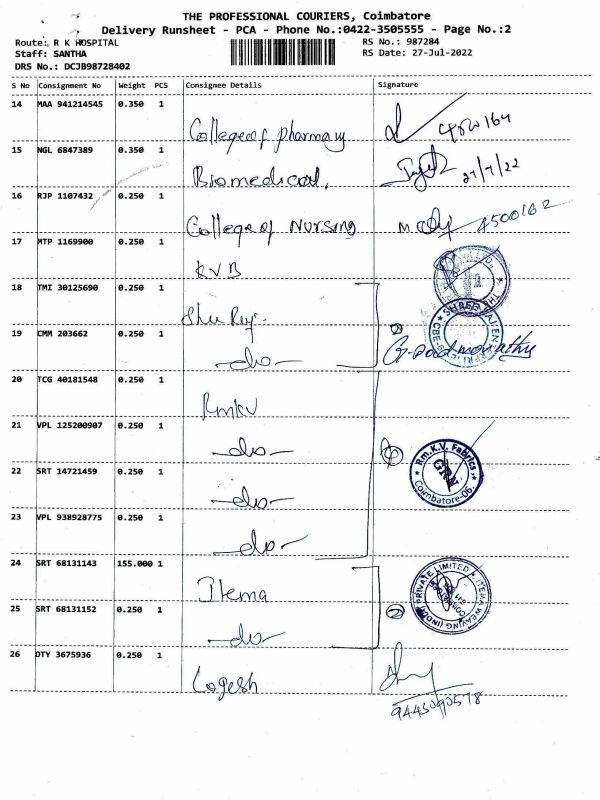 THE PROFESSIONAL COURIERS, Coimbatore
Delivery Runsheet - PCA - Phone No.:0422-3505555 - Page No.:2
Route: R K HOSPITAL RS No.: 987284
Staff: SANTHA RS Date: 27-Jul-2022
DRS No.: DCJB98728402
S No Consignment No Weight PCS Consignee Details Signature
14 MAA 941214545 0.350 1
College of pharmacy
15 NGL 6847389 0.350 1
Biomedical, 27/7/22
16 RJP 1107432 0.250 1
College of Nursing 4500162
17 MTP 1169900 0.250 1
KVB
18 TMI 30125690 0.250 1
Shree Raj
19 CMM 203662 0.250 1
-do-
20 TCG 40181548 0.250 1
Rmkv
21 VPL 125200907 0.250 1
-do-
Rm.K.V. Fabrics
GRN
Coimbatore-06.
22 SRT 14721459 0.250 1
-do-
23 VPL 938928775 0.250 1
-do-
24 SRT 68131143 155.000 1
Itema
ITEMA WEAVING (INDIA) PRIVATE LIMITED
25 SRT 68131152 0.250 1
-do-
26 DTY 3675936 0.250 1
Logesh